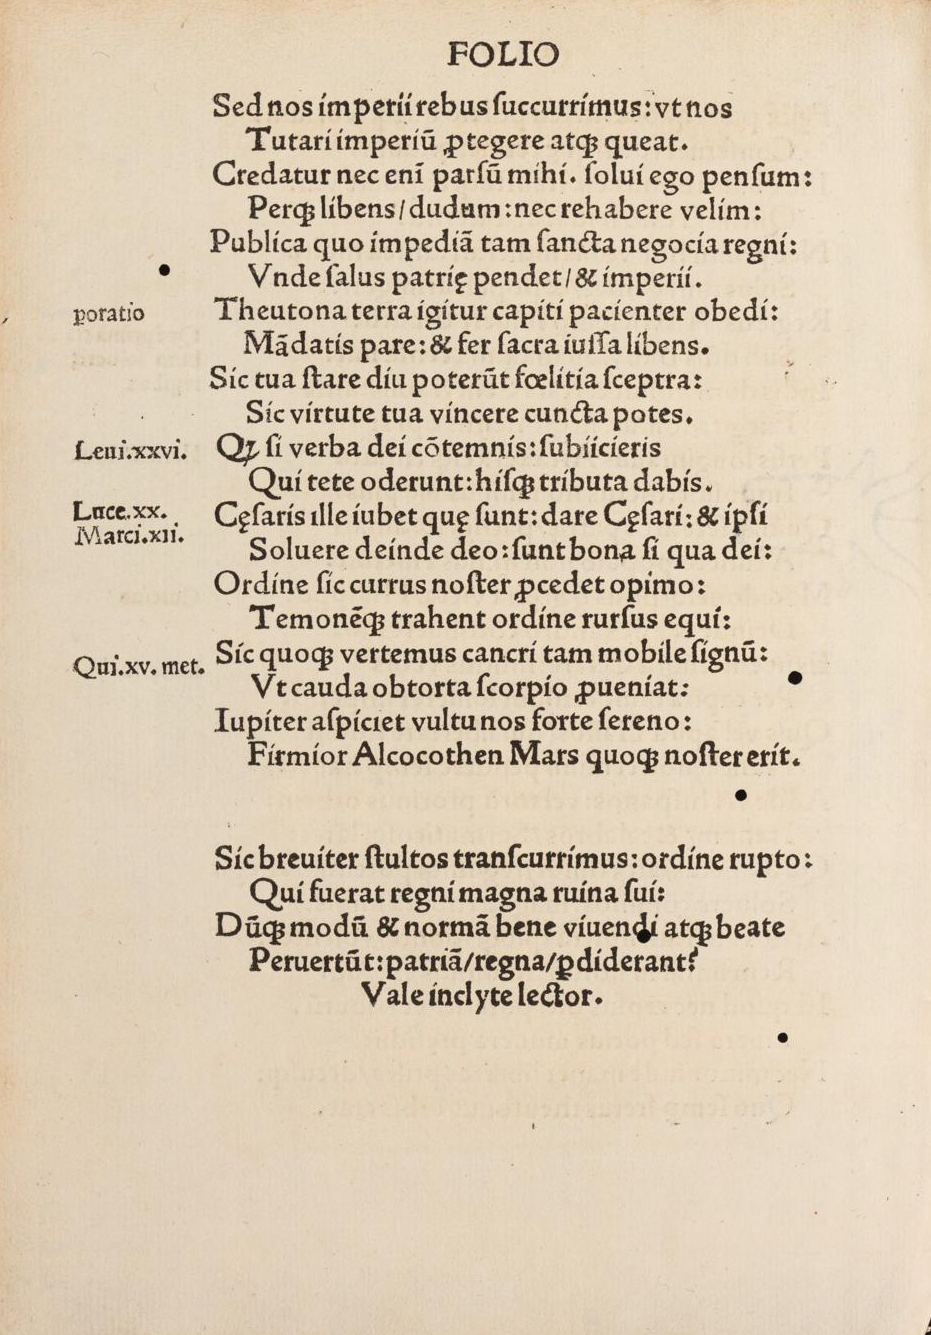 FOLIO
Sed nos imperii rebus ſuccurrimus: vt nos
Tutari imperiū ꝓtegere atqꝫ queat.
Credatur nec eni᷑ parſū mihi. ſolui ego penſum:
Perqꝫ libens/dudum: nec rehabere velim:
Publica quo impediā tam ſancta negocia regni:
Vnde ſalus patrię pendet/& imperii.
ꝑoratio
Theutona terra igitur capiti pacienter obedi:
Mādatis pare: & fer ſacra iuſſa libens.
Sic tua ſtare diu poterūt fœlitia ſceptra:
Sic virtute tua vincere cuncta potes.
Leui.xxvi.
Qꝫ ſi verba dei cōtemnis: ſubiicieris
Qui tete oderunt: hiſqꝫ tributa dabis.
Luce.xx.
Marci.xii.
Cęſaris ille iubet quę ſunt: dare Cęſari: & ipſi
Soluere deinde deo: ſunt bona ſi qua dei:
Ordine ſic currus noſter ꝓcedet opimo:
Temonēqꝫ trahent ordine rurſus equi:
Qui.xv. met.
Sic quoqꝫ vertemus cancri tam mobile ſignū:
Vt cauda obtorta ſcorpio ꝓueniat:
Iupiter aſpiciet vultu nos forte ſereno:
Firmior Alcocothen Mars quoqꝫ noſter erit.
Sic breuiter ſtultos tranſcurrimus: ordine rupto:
Qui fuerat regni magna ruina ſui:
Dūqꝫ modū & normā bene viuendi atqꝫ beate
Peruertūt: patriā/regna/ꝑdiderant?
Vale inclyte lector.